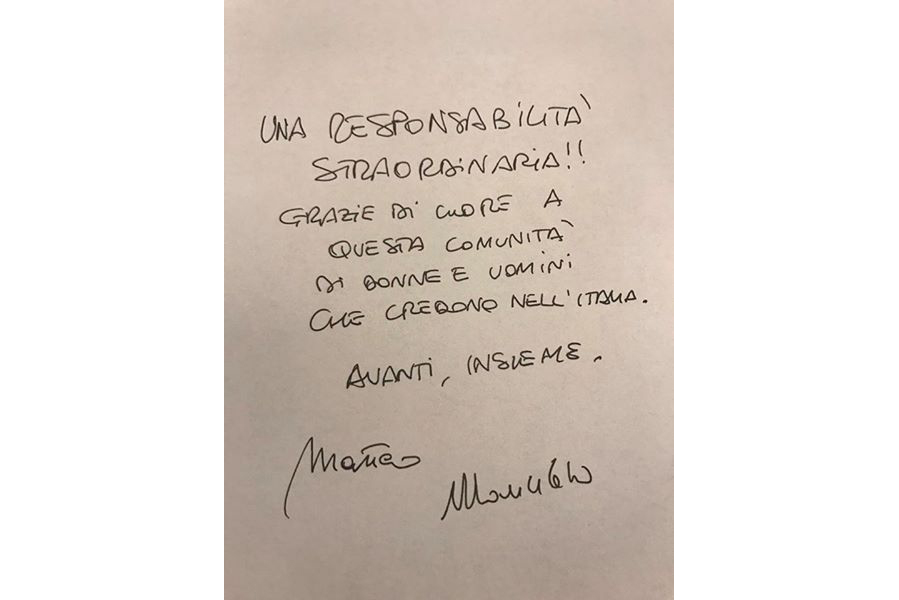 UNA RESPONSABILITÀ
STRAORDINARIA!!
GRAZIE DI CUORE A
QUESTA COMUNITÀ
DI DONNE E UOMINI
CHE CREDONO NELL'ITALIA.
AVANTI, INSIEME.
Matteo